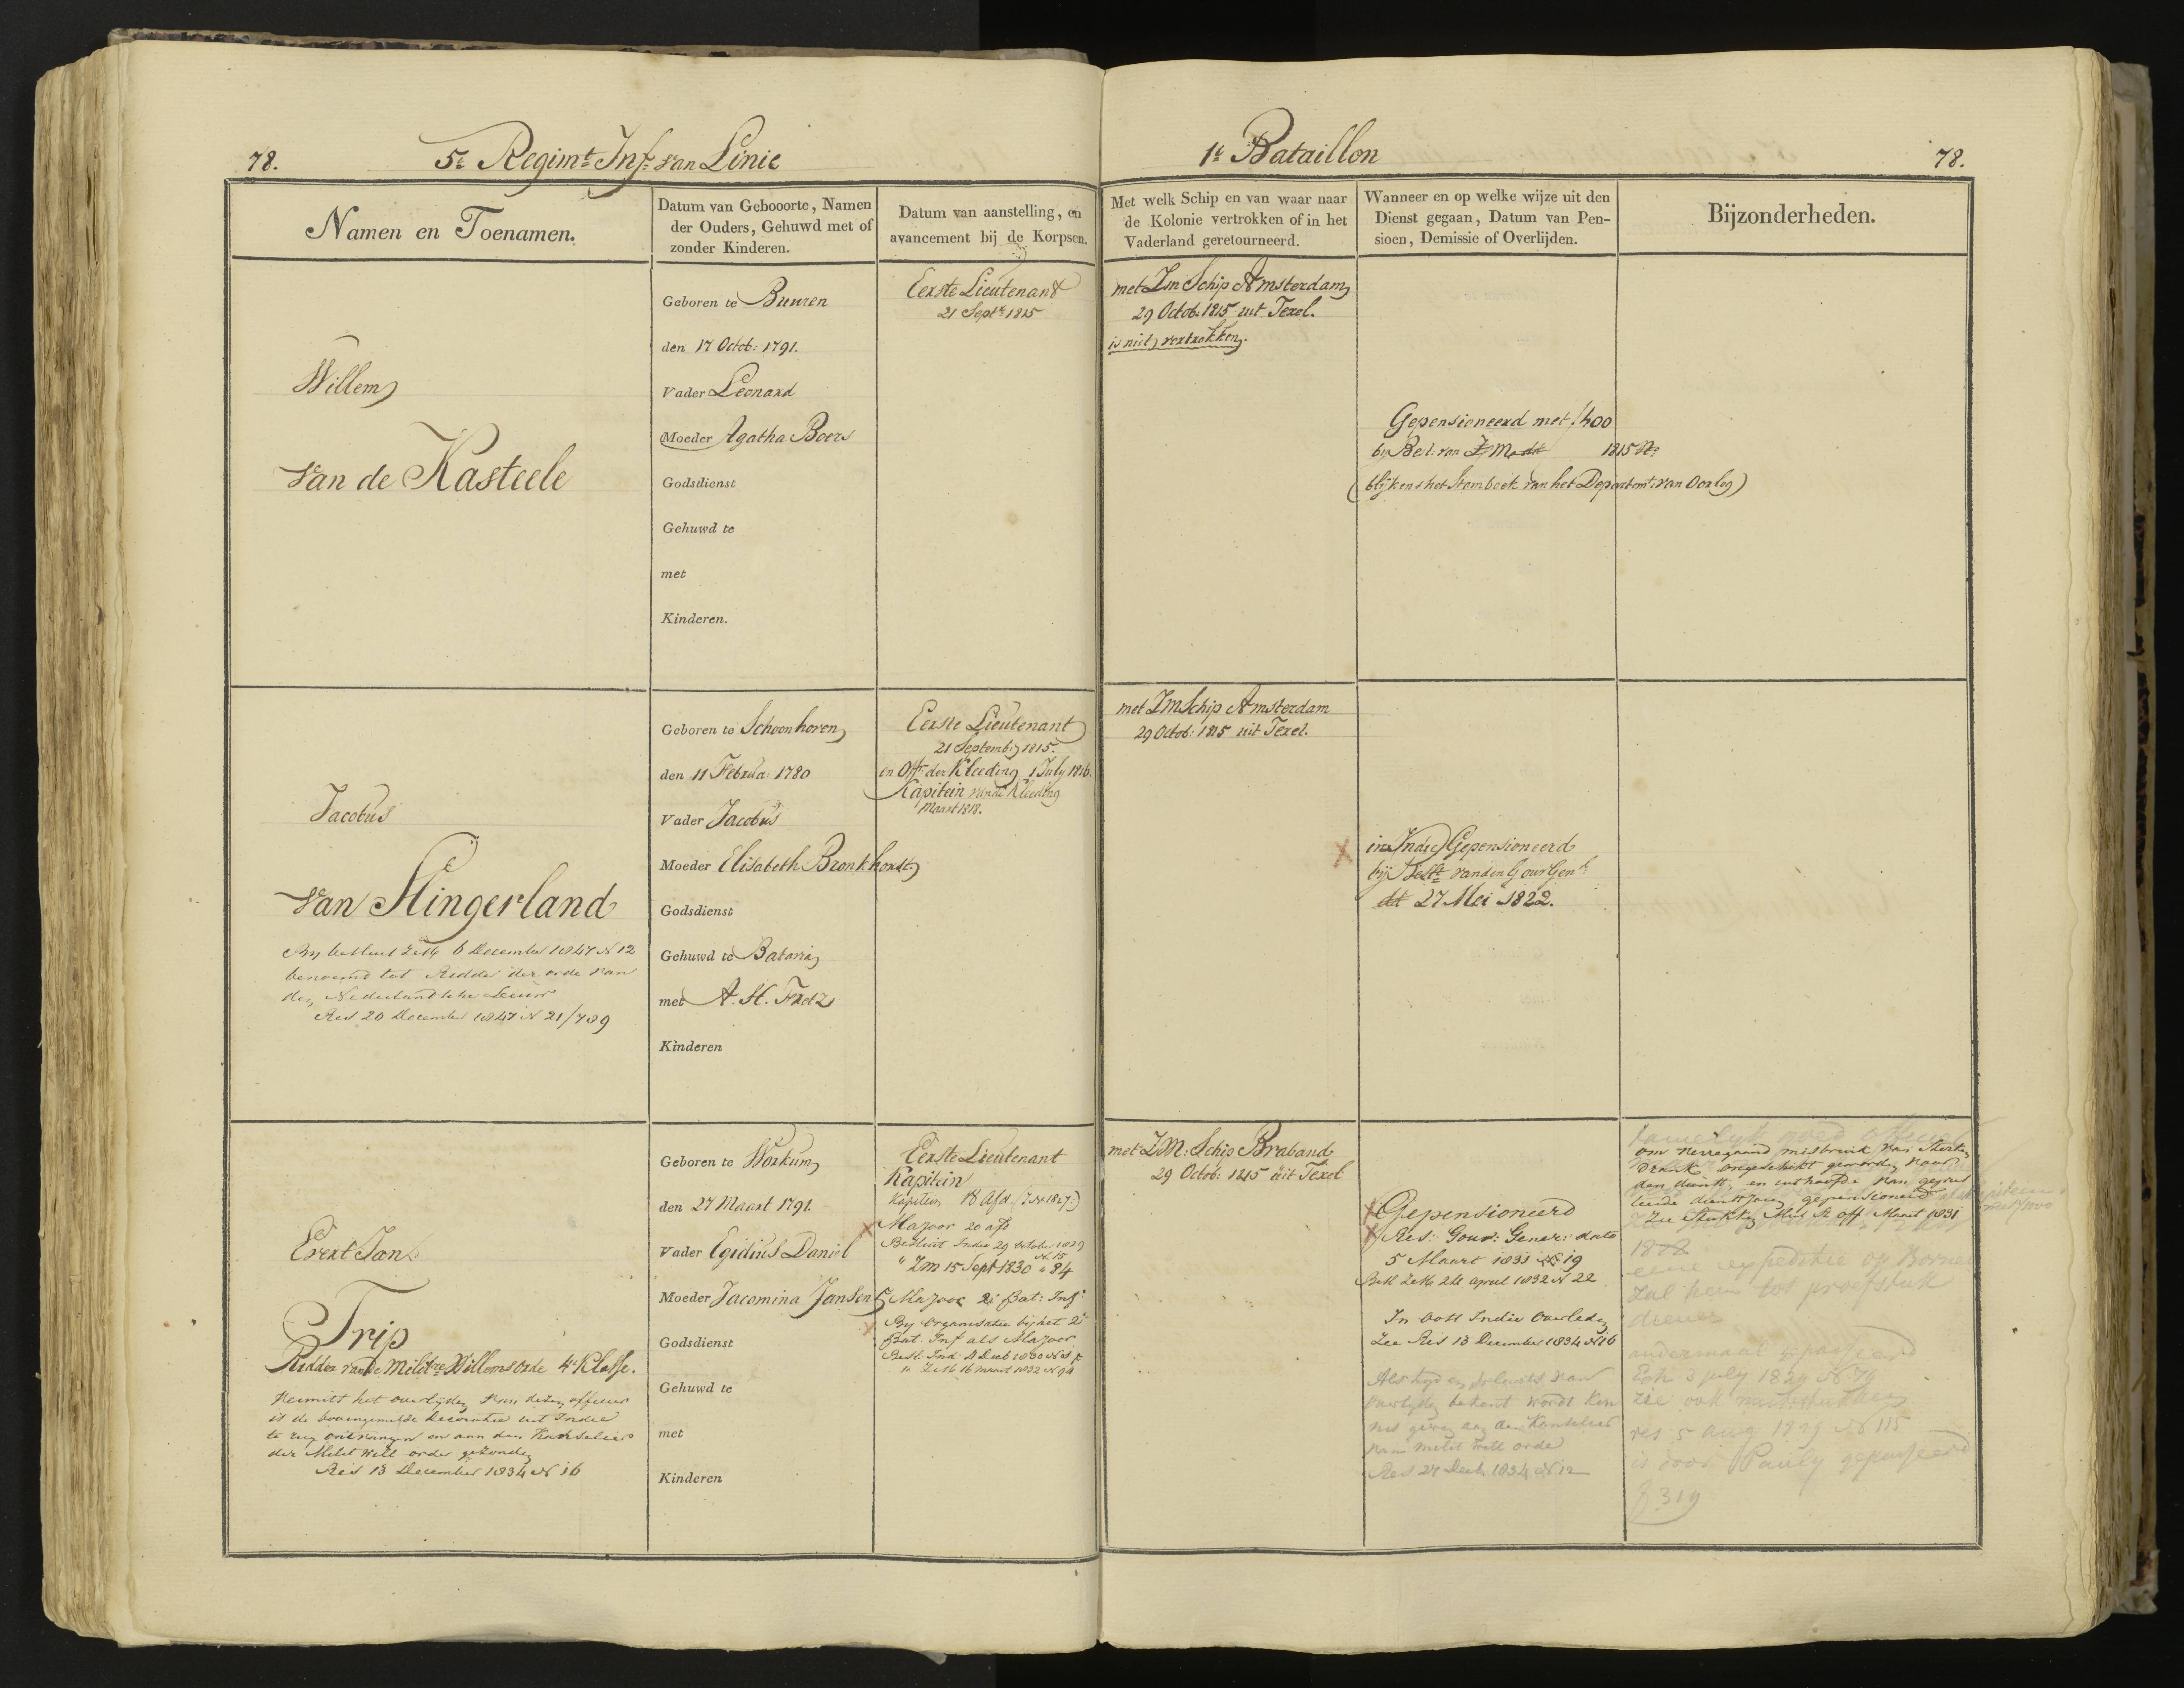 78.
5e Regimt Inf: van Linie
1e Bataillon
78.
Namen en Toenamen.
Datum van Gebooorte, Namen
der Ouders, Gehuwd met of
zonder Kinderen.
Datum van aanstelling, en
avancement bij de Korpsen.
Met welk Schip en van waar naar
de Kolonie vertrokken of in het
Vaderland geretourneerd.
Wanneer en op welke wijze uit den
Dienst gegaan, Datum van Pen-
sioen, Demissie of Overlijden.
Bijzonderheden.
Willem
van de Kasteele
Geboren te Buuren
den 17 Octob: 1791.
Vader Leonard
Moeder Agatha Boers
Godsdienst
Gehuwd te
met
Kinderen.
Eerste Lieutenant
21 Septr 1815
met Zm Schip Amsterdam
29 Octob: 1815 uit Texel.
is niet vertrokken.
Gepensioneerd met f 400
by Besl: van Z Mad 1815 No
(blijkens het Stamboek van het Departemt: van Oorlog)
Jacobus
van Slingerland
By besluit ZM 6 December 1847 N 12
benoemd tot Ridder der orde van
den Nederlandsche Leeuw
Res 20 December 1847 N 21/789
Geboren te Schoonhoven
den 11 Februa: 1780
Vader Jacobus
Moeder Elisabeth Bronkhorst
Godsdienst
Gehuwd te Batavia
met A. H. Fretz
Kinderen
Eerste Lieutenant
21 Septemb: 1815.
en Off: der Kleeding 1 July 1816.
Kapitein van de Kleeding
Maart 1818.
met ZmSchip Amsterdam
29 Octob: 1815 uit Texel.
in Indie Gepensioneerd
bij Beslt van den Gouv Genl:
dd 27 Mei 1822.
Evert Jan
Trip
Ridder van de Militre Willemsorde 4e Klasse.
Vermits het overlijden van dezen officier
is de bovengemelde decoratie uit Indie
te rug ontvangen en aan den Kanselier
der Milit Will orde gezonden
Res 13 December 1834 N 16
Geboren te Workum
den 27 Maart 1791.
Vader Egidius Daniel
Moeder Jacomina Jansen
Godsdienst
Gehuwd te
met
Kinderen
Eerste Lieutenant
Kapitein
Kapitein 18 Afd
Majoor 20 afd
Besluit Indie 29 October 1829
N 15
" Zm 15 Sept 1830 " 84
Majoor 2e Bat: Inf:
By Organisatie bij het 2e
Bat. Inf als Majoor
" ZM 16 maart 1832 N 94
met Z.M: Schip Braband
29 Octob: 1815 uit Texel
Gepensioneerd
Res: Gouv: Gener: dato
5 Maart 1831 No 19
Besl ZM 24 april 1832 N 22
In Oost Indie Overleden
Zie Res 13 December 1834 N 16
Als tyd en plaats van
overlyden bekent wordt Ken
nis geven aan den Kanselier
van Milit Will orde
Res 24 Decb 1834 N 12
om verregaand misbruik van Sterken
drank ongeschikt geworden voor
den dienst, en uit hoofde van
diensttyd gepensioneerd
Zie Maart 1831
1828
eene expeditie op Borneo
zal hem tot proefstuk
dienen
andermaal gepasseerd
5 july 1829 N 79
zie ook
res 5 aug 1829 N 115
is door Pauly gepasseerd
f 319